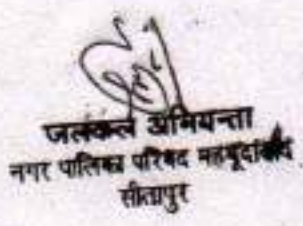 जलकल अभियन्ता
नगर पालिका परिषद महमूदाबाद
सीतापुर